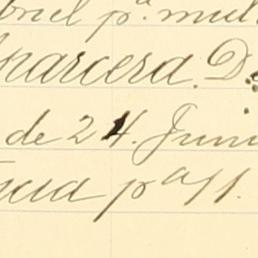 briel pª. mul
Aparcera. De
de 24. Juni
ncia pª 11.